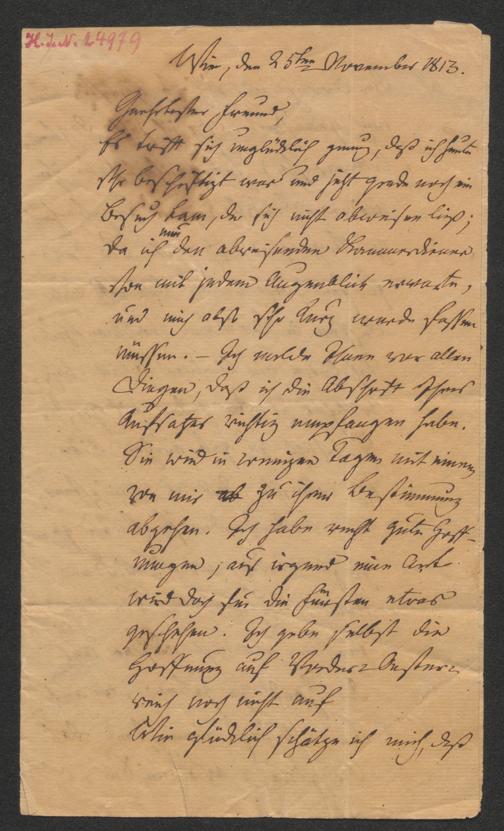 H.I.N. 24979
Wien, den 25ten November 1813.
Geehrtester Freund,
Es trifft sich unglücklich genug, daß ich heute
sehr beschäftigt war und jetzt gerade noch ein
Besuch kam, der sich nicht abweisen ließ;
da ich nun den abreisenden Kammerdiener
schon mit jedem Augenblick erwarte,
und mich also sehr kurz werde fassen
müssen. – Ich melde Ihnen vor allen
Dingen, daß ich die Abschrift Ihres
Aufsatzes richtig empfangen habe.
Sie wird in wenigen Tagen mit einem
von mir zu ihrer Bestimmung
abgehen. Ich habe recht gute Hoff-
nungen, auf irgend eine Art
wird doch für die Fürsten etwas
geschehen. Ich gebe selbst die
Hoffnung auf Vorder-Oester-
reich noch nicht auf
Wie glücklich schätze ich mich, daß